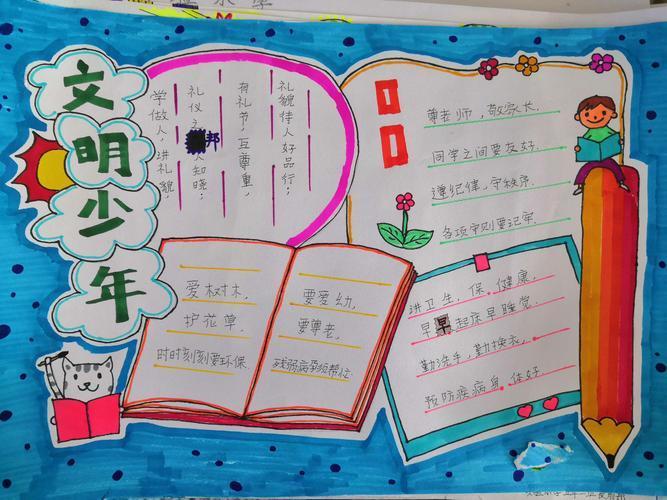 文明少年
礼貌待人好品行；
有礼节，互尊重，
礼仪之邦人知晓；
学做人，讲礼貌，
尊老师，敬家长。
同学之间要友好。
遵纪律，守秩序，
各项守则要记牢。
爱树木，
护花草，
时时刻刻要环保。
要爱幼，
要尊老，
残弱病孕须帮忙。
讲卫生，保健康，
早起床早睡觉。
勤洗手，勤换衣，
预防疾病身体好。